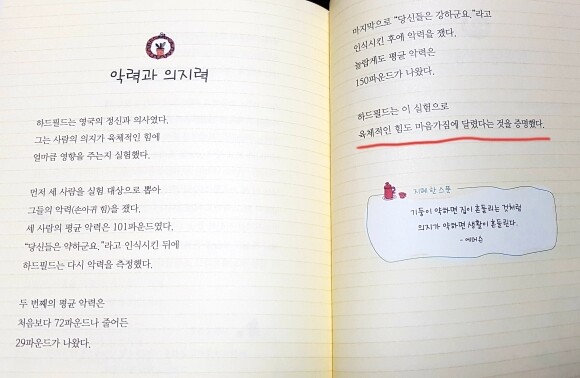 악력과 의지력
하드필드는 영국의 정신과 의사였다.
그는 사람의 의지가 육체적인 힘에
얼마큼 영향을 주는지 실험했다.
먼저 세 사람을 실험 대상으로 뽑아
그들의 악력(손아귀 힘)을 쟀다.
세 사람의 평균 악력은 101파운드였다.
“당신들은 약하군요.”라고 인식시킨 뒤에
하드필드는 다시 악력을 측정했다.
두 번째의 평균 악력은
처음보다 72파운드나 줄어든
29파운드가 나왔다.
마지막으로 “당신들은 강하군요.”라고
인식시킨 후에 악력을 쟀다.
놀랍게도 평균 악력은
150파운드가 나왔다.
하드필드는 이 실험으로
육체적인 힘도 마음가짐에 달렸다는 것을 증명했다.
지혜 한 스푼
기둥이 약하면 집이 흔들리는 것처럼
의지가 약하면 생활이 흔들린다.
- 에머슨